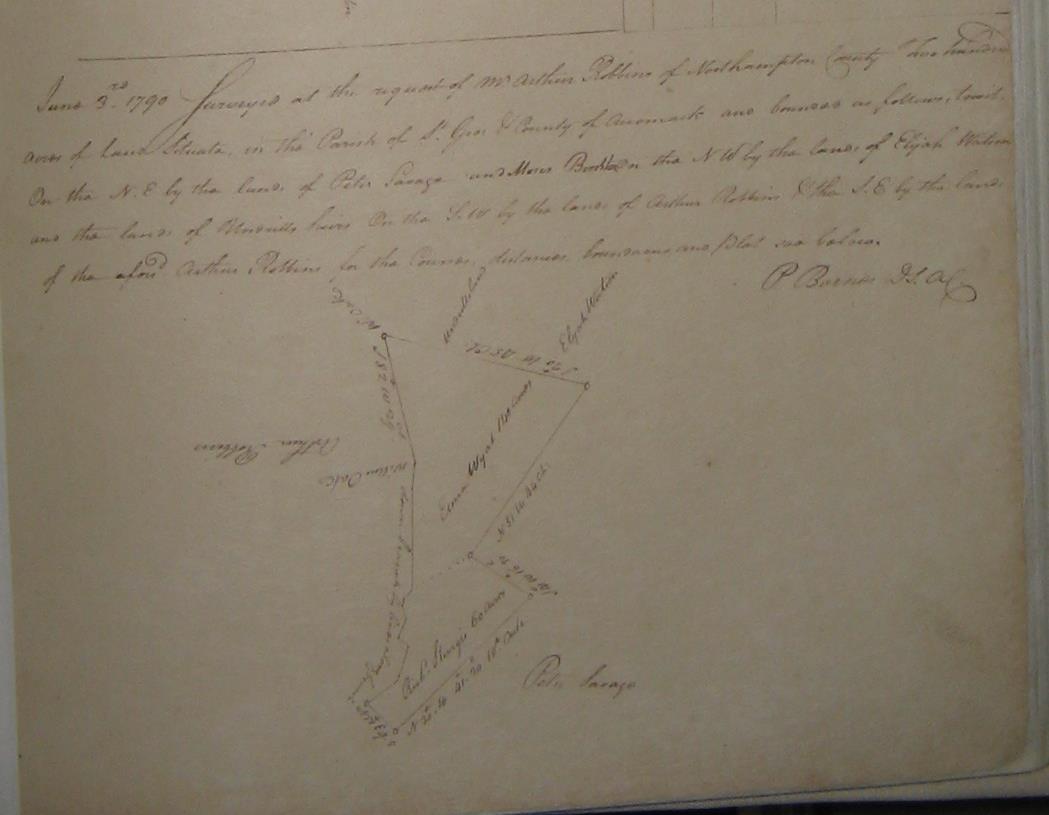 June 3.rd 1790 Surveyed at the request of Mr Arthur Robbins of Northampton County Two hundred
acres of Land Situate, in the Parish of St. Geo: & County of Accomack and bounded as follows, to wit.
On the N. E by the lands of Peter Savage and Moses on the N W by the lands of Elijah Watson
and the lands of heirs On the S. W by the lands of Arthur Robbins & the S. E by the lands
of the afors.d Arthur Robbins for the Courses, distances, boundaries and Plat see below.
P Barnes D S. A C
W. Oak
Elijah Watson
S 82 W 29
Arthur Robbins
Willow Oak
Wyat 140 acres
N 31 W 44 Ch.
Rich.d Sturgis 60 acres
Oak
Peter Savage